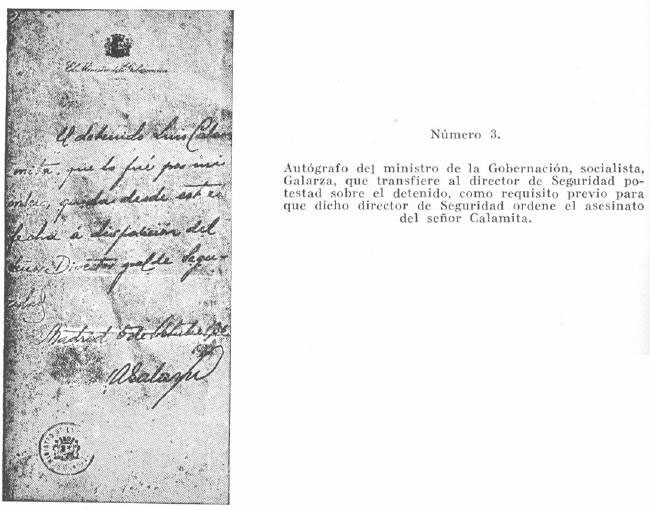 El Ministro de la Gobernación
El detenido Luis Cala-
mita, que lo fué por mi
orden, queda desde esta
fecha á disposición del
Señor Director gral de Segu-
ridad
Madrid 5 de Octubre
1936
A Galarza
Número 3.
Autógrafo del ministro de la Gobernación, socialista,
Galarza, que transfiere al director de Seguridad po-
testad sobre el detenido, como requisito previo para
que dicho director de Seguridad ordene el asesinato
del señor Calamita.